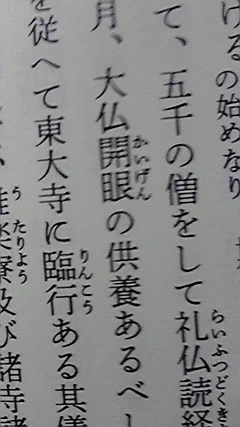 ける の始めなり
て、五千の僧をして礼仏読経
らいふつどくき
月、大仏開眼の供養あるべ
かいげん
を従へて東大寺に臨行ある其儀
りんこう
楽寮及び諸寺諸
うたりよう